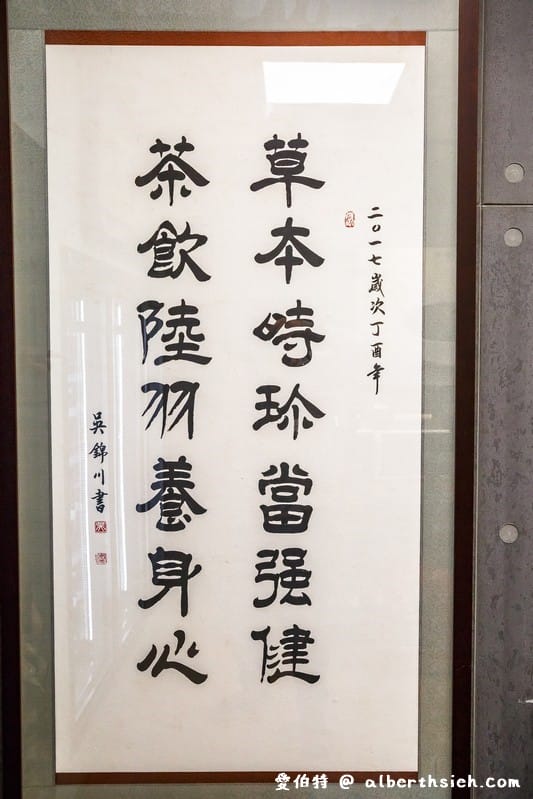 二〇一七歲次丁酉年
草本時珍當强健
茶飲陸羽養身心
吳錦川書
愛伯特 @ alberthsieh.com